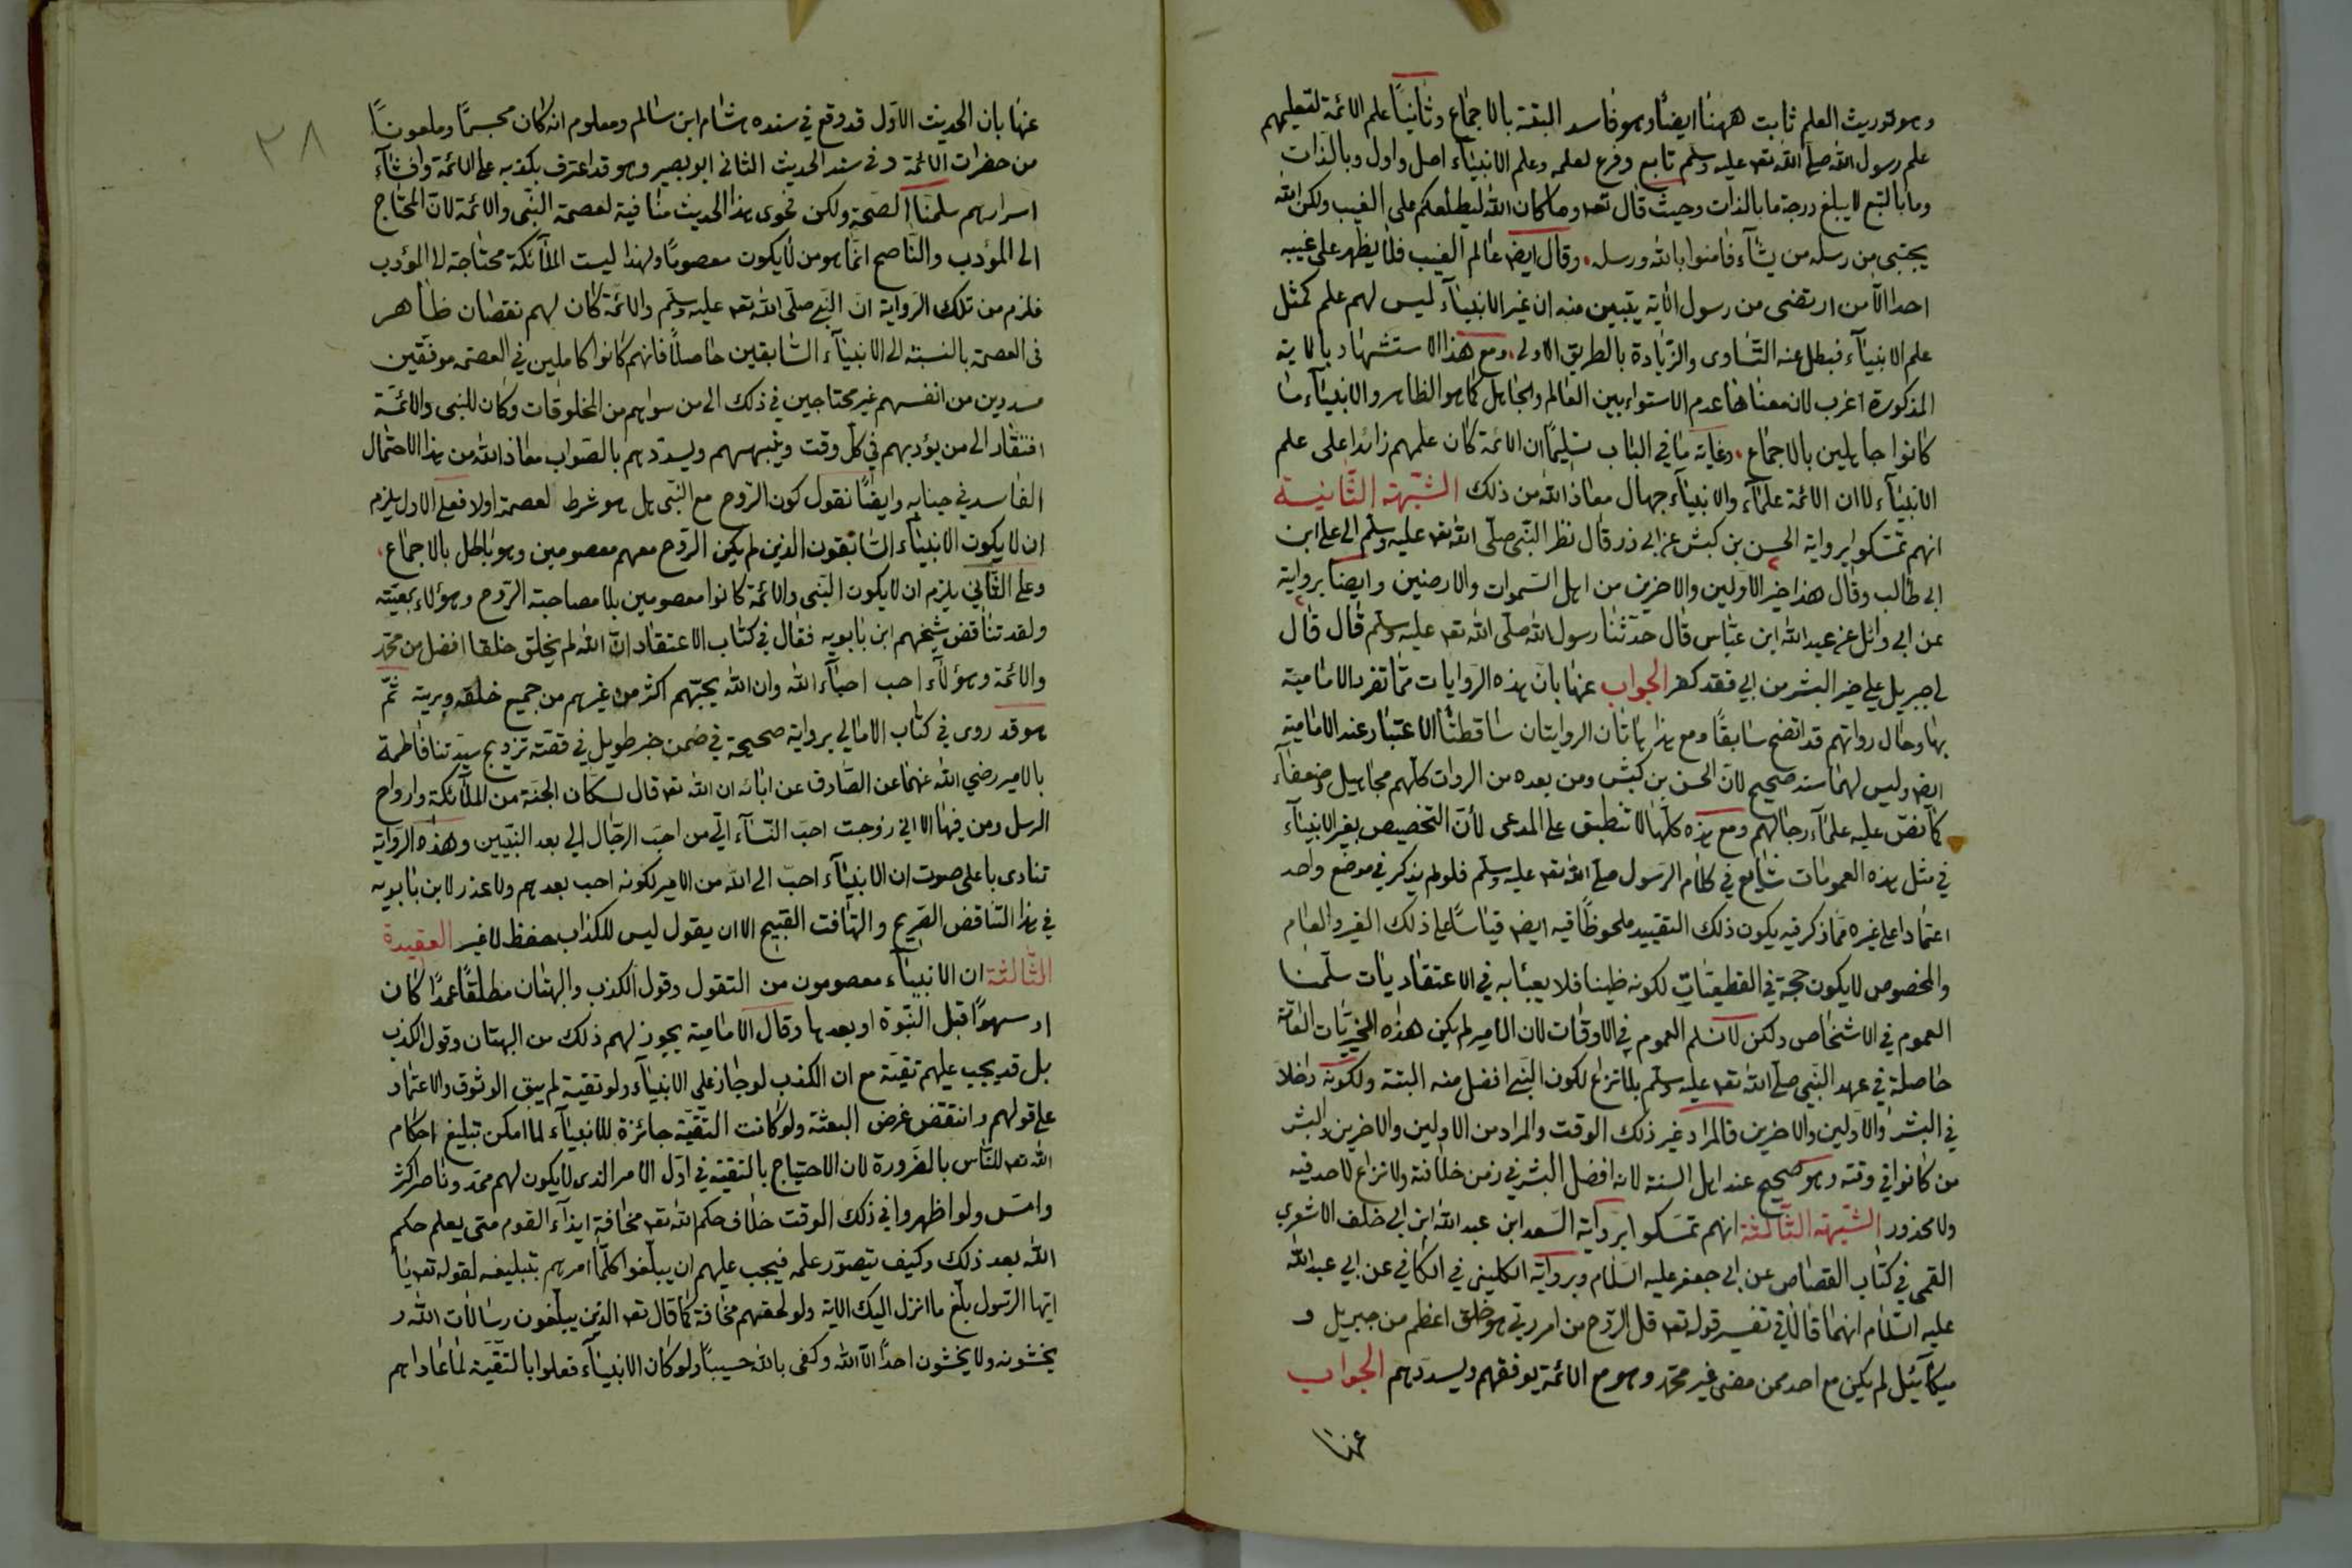 وهو توريث العلم ثابت ههنا ايضا وهو فاسد البتة بالاجماع وثانيا علم الائمة لتعليمهم
علم رسول الله صلى الله تعـ عليه وسلم تابع وفرع لعلمه وعلم الانبيآء اصل واول وبالذات
وما بالتبع لا يبلغ درجة ما بالذات وحيث قال تعـ وما كان الله ليطلعكم على الغيب ولكن الله
يجتبى من رسله من يشآء فامنوا بالله ورسله. وقال ايضـ عالم الغيب فلا يظهر على غيبه
احدا الا من ارتضى من رسول الآية يتبين منه ان غير الانبيآء ليس لهم علم كمثل
علم الانبيآء فبطل عنه التساوى والزيادة بالطريق الاولى. ومع هذا الاستشهاد بالاية
المذكورة اغرب لان معناها عدم الاستواء بين العالم والجاهل كما هو الظاهر والانبيآء ما
كانوا جاهلين بالاجماع. وغاية ما في الباب تسليما ان الائمة كان علمهم زائدا على علم
الانبيآء لا ان الائمة علمآء والانبيآء جهال معاذ الله من ذلك الشبهة الثانية
انهم تمسكوا برواية الحسن بن كبش عن ابى ذر قال نظر النبى صلى الله تعـ عليه وسلم الى على ابن
ابى طالب وقال هذا خير الاولين والاخرين من اهل السموات والارضين وايضا برواية
عن ابى وائل عن عبد الله ابن عباس قال حدثنا رسول الله صلى الله تعـ عليه وسلم قال قال
لى جبريل على خير البشر من ابى فقد كفر الجواب عنها بان هذه الروايات مما تفرد الامامية
بها وحال رواتهم قد اتضح سابقا ومع هذا هاتان الروايتان ساقطتا الاعتبار عند الامامية
ايضـ وليس لهما سند صحيح لان الحسن بن كبش ومن بعده من الروات كلهم مجاهيل وضعفآء
كما نص عليه علمآء رجالهم ومع هذه كلها لا تنطبق على المدعى لان التخصيص بغير الانبيآء
في مثل هذه العمومات شايع في كلام الرسول صلى الله تعـ عليه وسلم فلو لم يذكر في موضع واحد
اعتمادا على غيره مما ذكر فيه يكون ذلك التقييد ملحوظا فيه ايضـ قياسا على ذلك الغير والعام
والمخصوص لا يكون حجة في القطعيات لكونه ظنيا فلا يعبأ به في الاعتقاديات سلمنا
العموم في الاشخاص ولكن لا نسلم العموم في الاوقات لان الامير لم يكن هذه الخيريات العامة
حاصلة في عهد النبى صلى الله تعـ عليه وسلم بلا نزاع لكون النبى افضل منه البتة ولكونه داخلا
في البشر والاولين والاخرين فالمراد غير ذلك الوقت والمراد من الاولين والاخرين والبشر
من كانوا في وقته وهو صحيح عند اهل السنة لانه افضل البشر في زمن خلافته ولا نزاع لاحد فيه
ولا محذور الشبهة الثالثة انهم تمسكوا برواية السعد ابن عبد الله ابن ابى خلف الاشعرى
القمى في كتاب القصاص عن ابى جعفر عليه السلام وبرواية الكلينى في الكافي عن ابى عبد الله
عليه السلام انهما قالا في تفسير قوله تعـ قل الروح من امر ربى هو خلق اعظم من جبريل و
ميكآئيل لم يكن مع احد ممن مضى غير محمد وهو مع الائمة يوفقهم ويسددهم الجواب
عنها
٣٨
عنها بان الحديث الاول قد وقع في سنده هشام ابن سالم ومعلوم انه كان مجسما وملعونا
من حضرات الائمة وفى سند الحديث الثانى ابو بصير وهو قد اعترف بكذبه على الائمة وافشآء
اسرارهم سلمنا الصحة ولكن فحوى هذا الحديث منافية لعصمة النبى والائمة لان المحتاج
الى المؤدب والناصح انما هو من لا يكون معصوما ولهذا ليست الملآئكة محتاجة الى المؤدب
فلزم من تلك الرواية ان النبى صلى الله تعـ عليه وسلم والائمة كان لهم نقصان ظاهر
فى العصمة بالنسبة الى الانبيآء السابقين حاصلا فانهم كانوا كاملين في العصمة موفقين
مسددين من انفسهم غير محتاجين في ذلك الى من سواهم من المخلوقات وكان للنبى والائمة
افتقار الى من يؤدبهم في كل وقت وينبههم ويسددهم بالصواب معاذ الله من هذا الاحتمال
الفاسد في جنابه وايضا نقول كون الروح مع النبى هل هو شرط لعصمة اولا فعلى الاول يلزم
ان لا يكون الانبيآء السابقون الذين لم يكن الروح معهم معصومين وهو باطل بالاجماع.
وعلى الثانى يلزم ان لا يكون النبى والائمة كانوا معصومين بلا مصاحبة الروح وهؤلاء بمعيته
ولقد تناقض شيخهم ابن بابويه فقال في كتاب الاعتقاد ان الله لم يخلق خلقا افضل من محمد
والائمة وهؤلآء احب احبآء الله وان الله يحبهم اكثر من غيرهم من جميع خلقه وبريته ثم
هو قد روى في كتاب الامالى برواية صحيحة في ضمن خبر طويل في قصة تزويج سيدتنا فاطمة
بالامير رضي الله عنهما عن الصادق عن ابائه ان الله تعـ قال لسكان الجنة من الملآئكة وارواح
الرسل ومن فيها الا انى زوجت احب النسآء الى من احب الرجال الى بعد النبيين وهذه الرواية
تنادى باعلى صوت ان الانبيآء احب الى الله من الامير لكونه احب بعدهم ولا عذر لابن بابويه
في هذا التناقض الصريح والتهافت القبيح الا ان يقول ليس للكذاب حفظ لا غير العقيدة
الثالثة ان الانبيآء معصومون من التقول وقول الكذب والبهتان مطلقا عمدا كان
او سهوا قبل النبوة او بعدها وقال الامامية يجوز لهم ذلك من البهتان وقول الكذب
بل قد يجب عليهم تقية مع ان الكذب لو جاز على الانبيآء ولو تقية لم يبق الوثوق والاعتماد
على قولهم وانتقض غرض البعثة ولو كانت التقية جائزة للانبيآء لما امكن تبليغ احكام
الله تعـ للناس بالضرورة لان الاحتياج بالتقية في اول الامر الذى لا يكون لهم ممد وناصر اكثر
وامس ولو اظهروا في ذلك الوقت خلاف حكم الله تعـ مخافة ايذآء القوم متى يعلم حكم
الله بعد ذلك وكيف يتصور علمه فيجب عليهم ان يبلغوا كلما امرهم بتبليغه لقوله تعـ يا
ايها الرسول بلغ ما انزل اليك الاية ولو لحقهم مخافة كما قال تعـ الذين يبلغون رسالات الله و
يخشونه ولا يخشون احدا الا الله وكفى بالله حسيبا ولو كان الانبيآء فعلوا بالتقية لما عاداهم